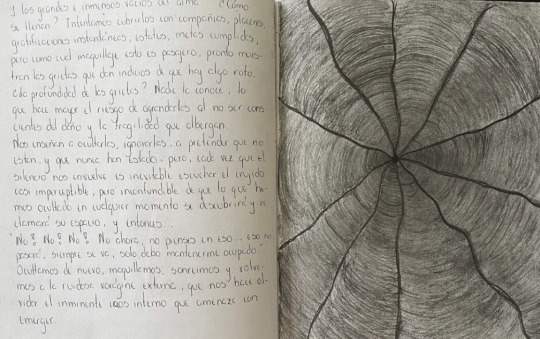 y los grandes e inmensos vacíos del alma... ¿Cómo
se llenan? Intentamos cubrirlos con compañías, placeres,
gratificaciones instantáneas, estatus, metas cumplidas,
pero como cual maquillaje esto es pasajero, pronto mues-
tran las grietas que dan indicio de que hay algo roto.
¿La profundidad de las grietas? Nadie la conoce, lo
que hace mayor el riesgo de agrandarlas al no ser cons
cientes del daño y la fragilidad que albergan.
Nos enseñan a ocultarlos, ignorarlos, a pretender que no
están, y que nunca han estado, pero, cada vez que el
silencio nos envuelve es inevitable escuchar el rugido
casi imperceptible, pero inconfundible de que lo que he-
mos ocultado en cualquier momento se descubrirá y re
clamará su espacio, y entonces...
"No! No! No! No ahora, no pienses en eso... eso no
pasará, siempre se va, solo debo mantenerme ocupado"
Ocultemos de nuevo, maquillemos, sonreímos y volve-
mos a la ruidosa vorágine externa, que nos hace ol-
vidar el inminente caos interno que amenaza con
emerger.